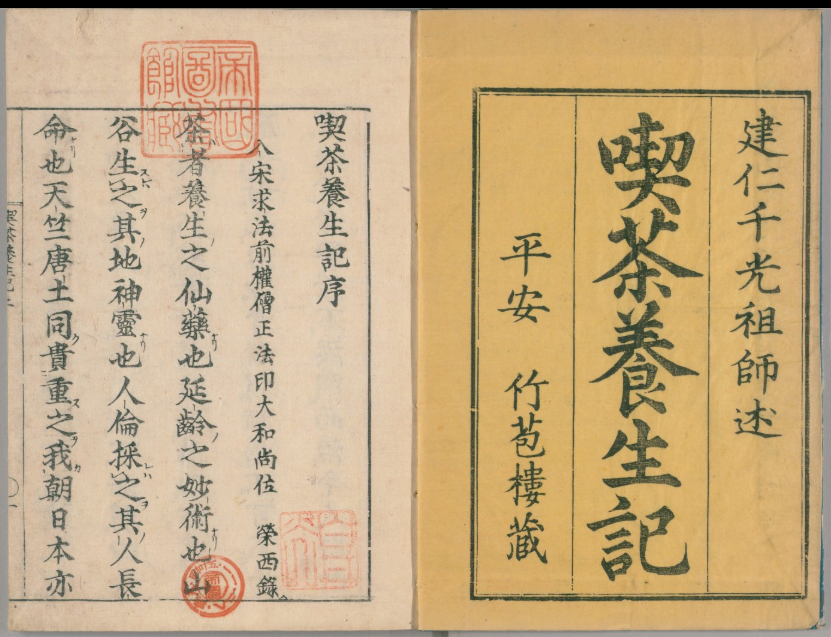 建仁千光祖師述
喫茶養生記
平安　竹苞樓藏
帝國圖書館藏
喫茶養生記序
入宋求法前權僧正法印大和尚位　榮西錄
茶者養生之仙藥也延齡之妙術也山
谷生之其地神靈也人倫採之其人長
命也天竺唐土同貴重之我朝日本亦